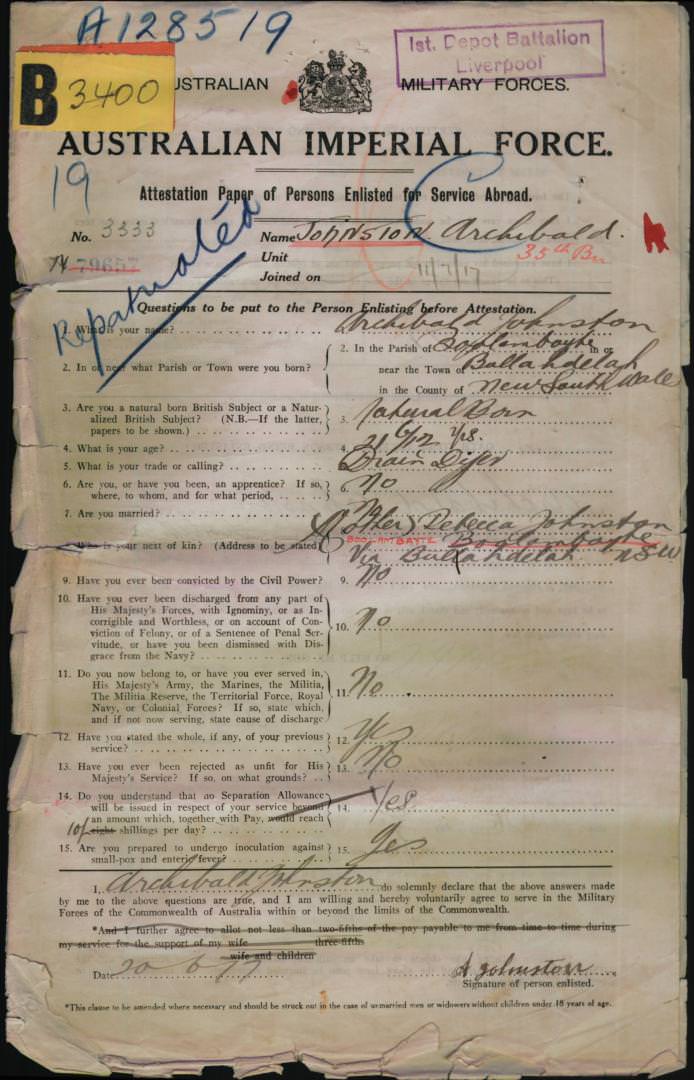 A128519
1st. Depot Battalion
Liverpool
B 3400
AUSTRALIAN MILITARY FORCES.
AUSTRALIAN IMPERIAL FORCE.
19
Attestation Paper of Persons Enlisted for Service Abroad.
No. 3333 Name JOHNSTON Archibald.
74 79657 Unit 35th Bn
Joined on 11/7/17
Repatriated
Questions to be put to the Person Enlisting before Attestation.
1. What is your name? Archibald Johnston
2. In or near what Parish or Town were you born?
2. In the Parish of Boolambayte in or
near the Town of Bullahdelah
in the County of New South Wale
3. Are you a natural born British Subject or a Natur-
alized British Subject? (N.B.—If the latter,
papers to be shown.)
3. Natural Born
4. What is your age? 4. 21 6/12 yrs.
5. What is your trade or calling? 5. Drain Diger
6. Are you, or have you been, an apprentice? If so,
where, to whom, and for what period,
6. No
7. Are you married? 7. No
8. Who is your next of kin? (Address to be stated)
(Mother) Rebecca Johnston
BOOLAMBAYTE Boolambayte
Via Bullahdelah NSW
9. Have you ever been convicted by the Civil Power? 9. No
10. Have you ever been discharged from any part of
His Majesty's Forces, with Ignominy, or as In-
corrigible and Worthless, or on account of Con-
viction of Felony, or of a Sentence of Penal Ser-
vitude, or have you been dismissed with Dis-
grace from the Navy?
10. No
11. Do you now belong to, or have you ever served in,
His Majesty's Army, the Marines, the Militia,
The Militia Reserve, the Territorial Force, Royal
Navy, or Colonial Forces? If so, state which,
and if not now serving, state cause of discharge
11. No
12. Have you stated the whole, if any, of your previous
service?
12. Yes
13. Have you ever been rejected as unfit for His
Majesty's Service? If so, on what grounds?
13. No
14. Do you understand that no Separation Allowance
will be issued in respect of your service beyond
an amount which, together with Pay, would reach
10/- eight shillings per day?
14. Yes
15. Are you prepared to undergo inoculation against
small-pox and enteric fever?
15. Yes
I, Archibald Johnston do solemnly declare that the above answers made
by me to the above questions are true, and I am willing and hereby voluntarily agree to serve in the Military
Forces of the Commonwealth of Australia within or beyond the limits of the Commonwealth.
*And I further agree to allot not less than two-fifths of the pay payable to me from time to time during
my service for the support of my wife three-fifths
wife and children
Date 20-6-17 A Johnston
Signature of person enlisted.
*This clause to be amended where necessary and should be struck out in the case of unmarried men or widowers without children under 18 years of age.